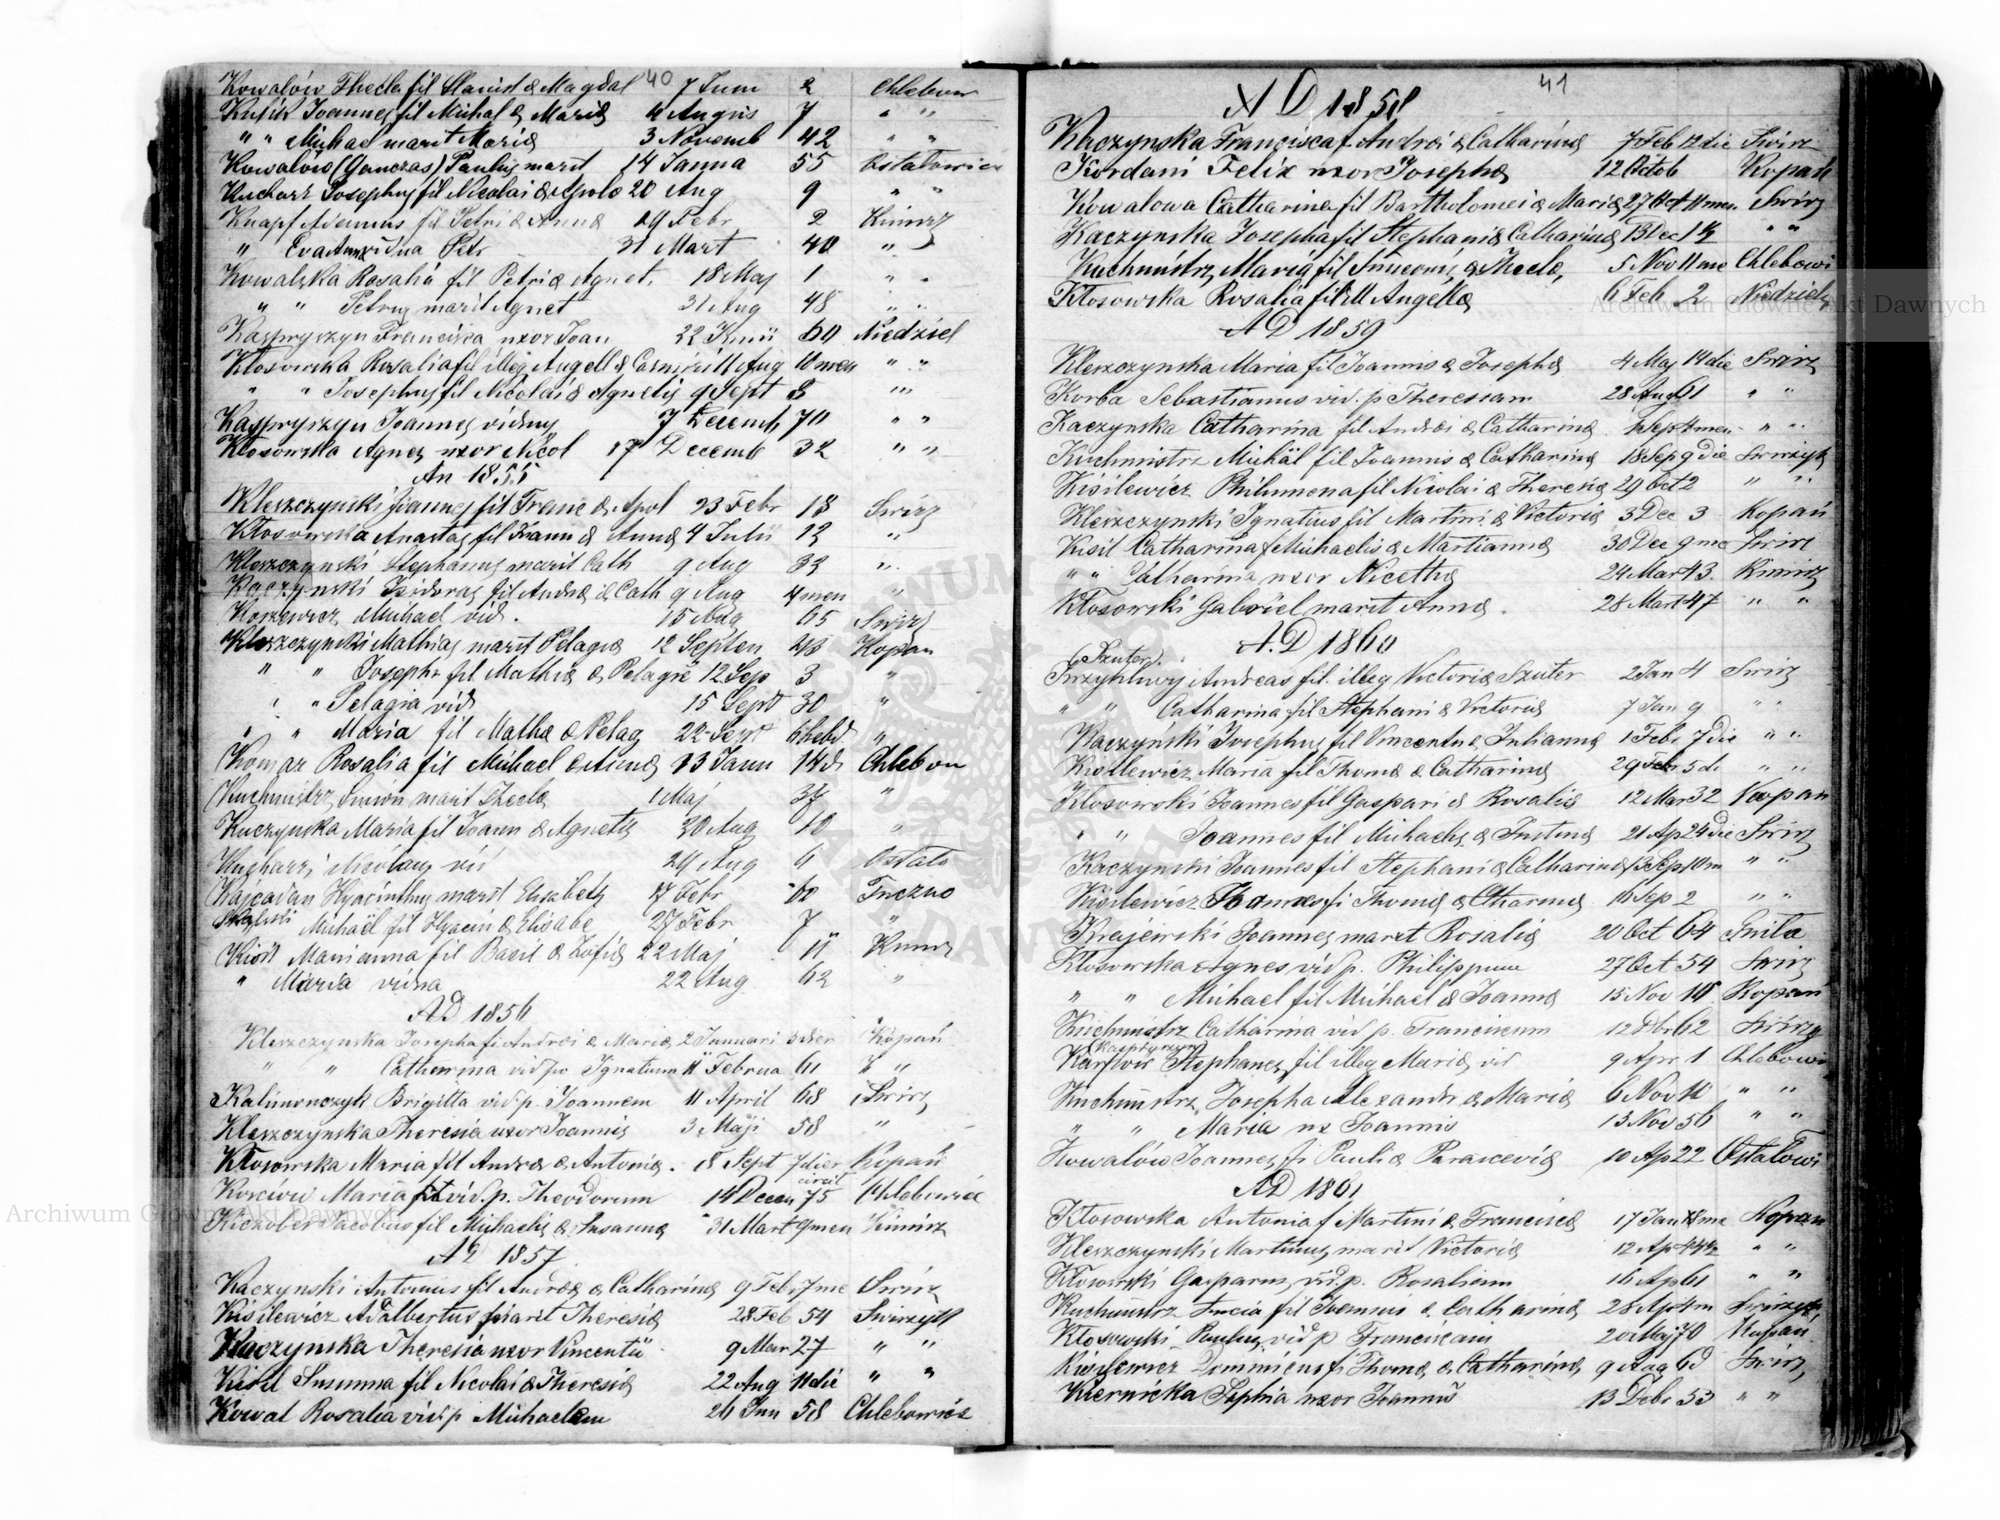 40
Kowalów Thecla fil Stanisl & Magdal 7 Juni 2 Chlebow
Kubik Joannes fil Michal & Maria 4 Augus 7 " "
" " Michael marit Maria 3 Novemb 42 " "
Kowalów (Ganczas) Paulus marit 14 Janua 55 Ostalowice
Kucharz Josephus fil Nicolai & Apolo 20 Aug 9 " "
Knapf fil Petri & Anna 29 Febr 2 Kimirz
" Eva vidua Petr 31 Mart 40 "
Kowalska Rosalia fil Petri & Agnet. 18 Maj 1 " "
" " Petrus marit Agnet 31 Aug 48 " "
Kasprzyszyn Francisca uxor Joan 22 Junii 60 Niedziel
Kłosowska Rosalia fil illeg Angell & Aug 10 men " "
" " Josephus fil Nicolai & Agnetis 9 Sept 3 " "
Kasprzyszyn Joannes viduus 7 Decemb 70 " "
Kłosowska Agnes uxor Nicol 17 Decemb 32 " "
An 1855
Kleszczynski Joannes fil Franc & Apol 23 Febr 18 Swirz
Kłosowska Anastas fil Joann & Anna 4 Julii 12 "
Kleszczynski Stephanus marit Cath 9 Aug 33 "
Kaczynski Isidorus fil Andrea & Cath 9 Aug 4 men "
Michael vid. 15 Aug 65 Swirz
Kleszczynski Mathias marit Pelagia 12 Septem 43 Kopan
" " Joseph fil Mathia & Pelagie 12 Sep 3 "
" " Pelagia vid 15 Sept 30 "
" " Maria fil Matha & Pelag 22 Sept 6 hebd "
Komar Rosalia fil Michael & Anna 13 Jann 14 d Chlebow
Kuchmistrz Simon marit Thecla 1 Maj 37 "
Kuczynska Maria fil Joann & Agnetis 30 Aug 10 "
Kucharz Nicolaus vid 29 Aug 6 Ostalo
Hyacinthus marit Elisabeth 17 Febr 60 Tuczno
Michaël fil Hyacin & Elisabe 27 Febr 7 "
Kisil Marianna fil Basil & Zofia 22 Maj 11 Kimirz
" Maria vidua 22 Aug 62 "
AD 1856
Kleszczynska Josepha fi Andrei & Maria 2 Januari 3 dier Kopań
" " Catharina vid po Ignatium 11 Februa 61 " "
Kalimonczyk Brigitta vid p. Joannem 11 April 68 Swirz
Kleszczynska Theresia uxor Joannis 3 Maji 58 "
Kłosowska Maria fil Andrea & Antonia. 18 Sept 7 dier Kopań
Maria vid. p. Theodorum 14 Decem circit 75 Chlebowice
Jacobus fil Michaelis & Susanna 31 Mart 9 men Kimirz
AD 1857
Kaczynski Antonius fil Andrea & Catharina 9 Feb 7 me Swirz
Kisilewicz Adalbertus marit Theresia 28 Feb 54 Swirzyk
Kaczynska Theresia uxor Vincentii 9 Mar 27 " "
Kisil Susanna fil Nicolai & Theresia 22 Aug 11 die " "
Kowal Rosalia vid p Michaelem 26 Jun 58 Chlebowice
41
AD 1858
Kaczynska Francisca f. Andrei & Catharina 7 Feb 12 die Swirz
Kordani Felix uxor Josepha 12 Octob Kopań
Kowalowa Catharina fil Bartholomei & Maria 27 Oct 11 men. Swirz
Kaczynska Josepha fil Stephani & Catharina 13 Dec 14 " "
Kuchmistrz Maria fil Simeonis & Thecla, 5 Nov 11 me Chlebowi
Kłosowska Rosalia fil ill Angella 6 Feb 2 Niedziel
AD 1859
Kleszczynska Maria fil Joannis & Josepha 4 Maj 14 die Swirz
Korba Sebastianus vid. p Theresiam 28 Aug 61 " "
Kaczynska Catharina fil Andrei & Catharina Sep men " "
Kuchmistrz Michäl fil Joannis & Catharina 18 Sep 9 die Swirzyk
Kisilewicz Philumena fil Nicolai & Theresia 29 Oct 2 " "
Kleszczynski Ignatius fil Martini & Victoria 3 Dec 3 Kopań
Kisil Catharina f Michaelis & Martianna 30 Dec 9 me Swirz
" " Catharina uxor Nicetha 24 Mar 43. Kimirz
Kłosowski Gabriel marit Anna. 28 Mart 47 " "
A.D 1860
(Szuter).
Andreas fil. illeg Victoria Szuter 2 Jan 4 Swirz
" " Catharina fil Stephani & Victoria 7 Jan 9 " "
Kaczyński Josephus fil Vincentii & Julianna 1 Feb 7 die " "
Kisilewicz Maria fil Thoma & Catharina 29 Feb 5 di " "
Kłosowski Joannes fil Gaspari & Rosalia 12 Mar 32 Kopan
" " Joannes fil Michaelis & Justina 21 Ap 24 die Swirz
Kaczynski Joannes fil Stephani & Catharina 13 Sep 10 m " "
Kisilewicz Joannes fi Thoma & Catharina 16 Sep 2 " "
Krajewski Joannes marit Rosalia 20 Oct 64 Gnita
Kłosowska Agnes vid p. Philippum 27 Oct 54 Swirz
" " Michael fil Michael & Joanna 15 Nov 10 Kopań
Kuchmistrz Catharina vid p. Franciscum 12 Dbr 62 Swirzy
Stephanes fil illeg Maria vid 9 Apr 1 Chlebowi
Kuchmistrz Josepha Alexandr & Maria 6 Nov 11 " "
" " Maria ux Joannis 13 Nov 56 " "
Kowalów Joannes fi Pauli & Parascevia 10 Ap 22 Ostalowi
AD 1861
Kłosowska Antonia f Martini & Francisca 17 Jan 18 me Kopań
Kleszczynski Martinus marit Victoria 12 Ap " "
Kłosowski Gasparus vid. p. Rosaliam 16 Ap 61 " "
Kuchmistrz Lucia fil Joannis & Catharina 28 Ap 4 m Swirzyk
Kłosowski Paulus vid p Franciscam 20 Maj 70 Kopań
Kisilewicz Dominicus fi Thoma & Catharina 9 Aug 6 d Swirz
Kiernicka Sophia uxor Joannis 13 Debr 33 " "
Archiwum Główne Akt Dawnych
Archiwum Główne Akt Dawnych